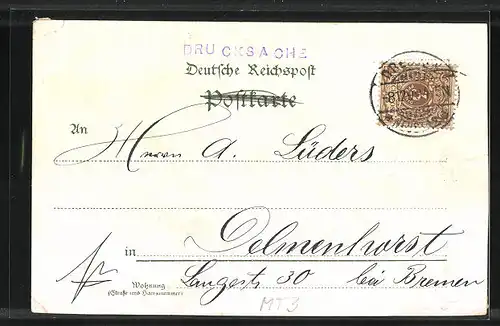 DRUCKSACHE
Deutsche Reichspost
Postkarte
An
Herrn A. Lüders
in Delmenhorst
Wohnung
(Straße und Hausnummer)
Langestr 30 bei Bremen
MT3